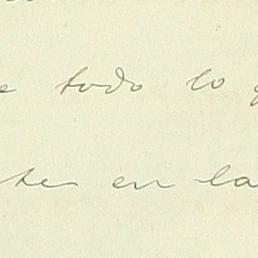 todo lo
en la